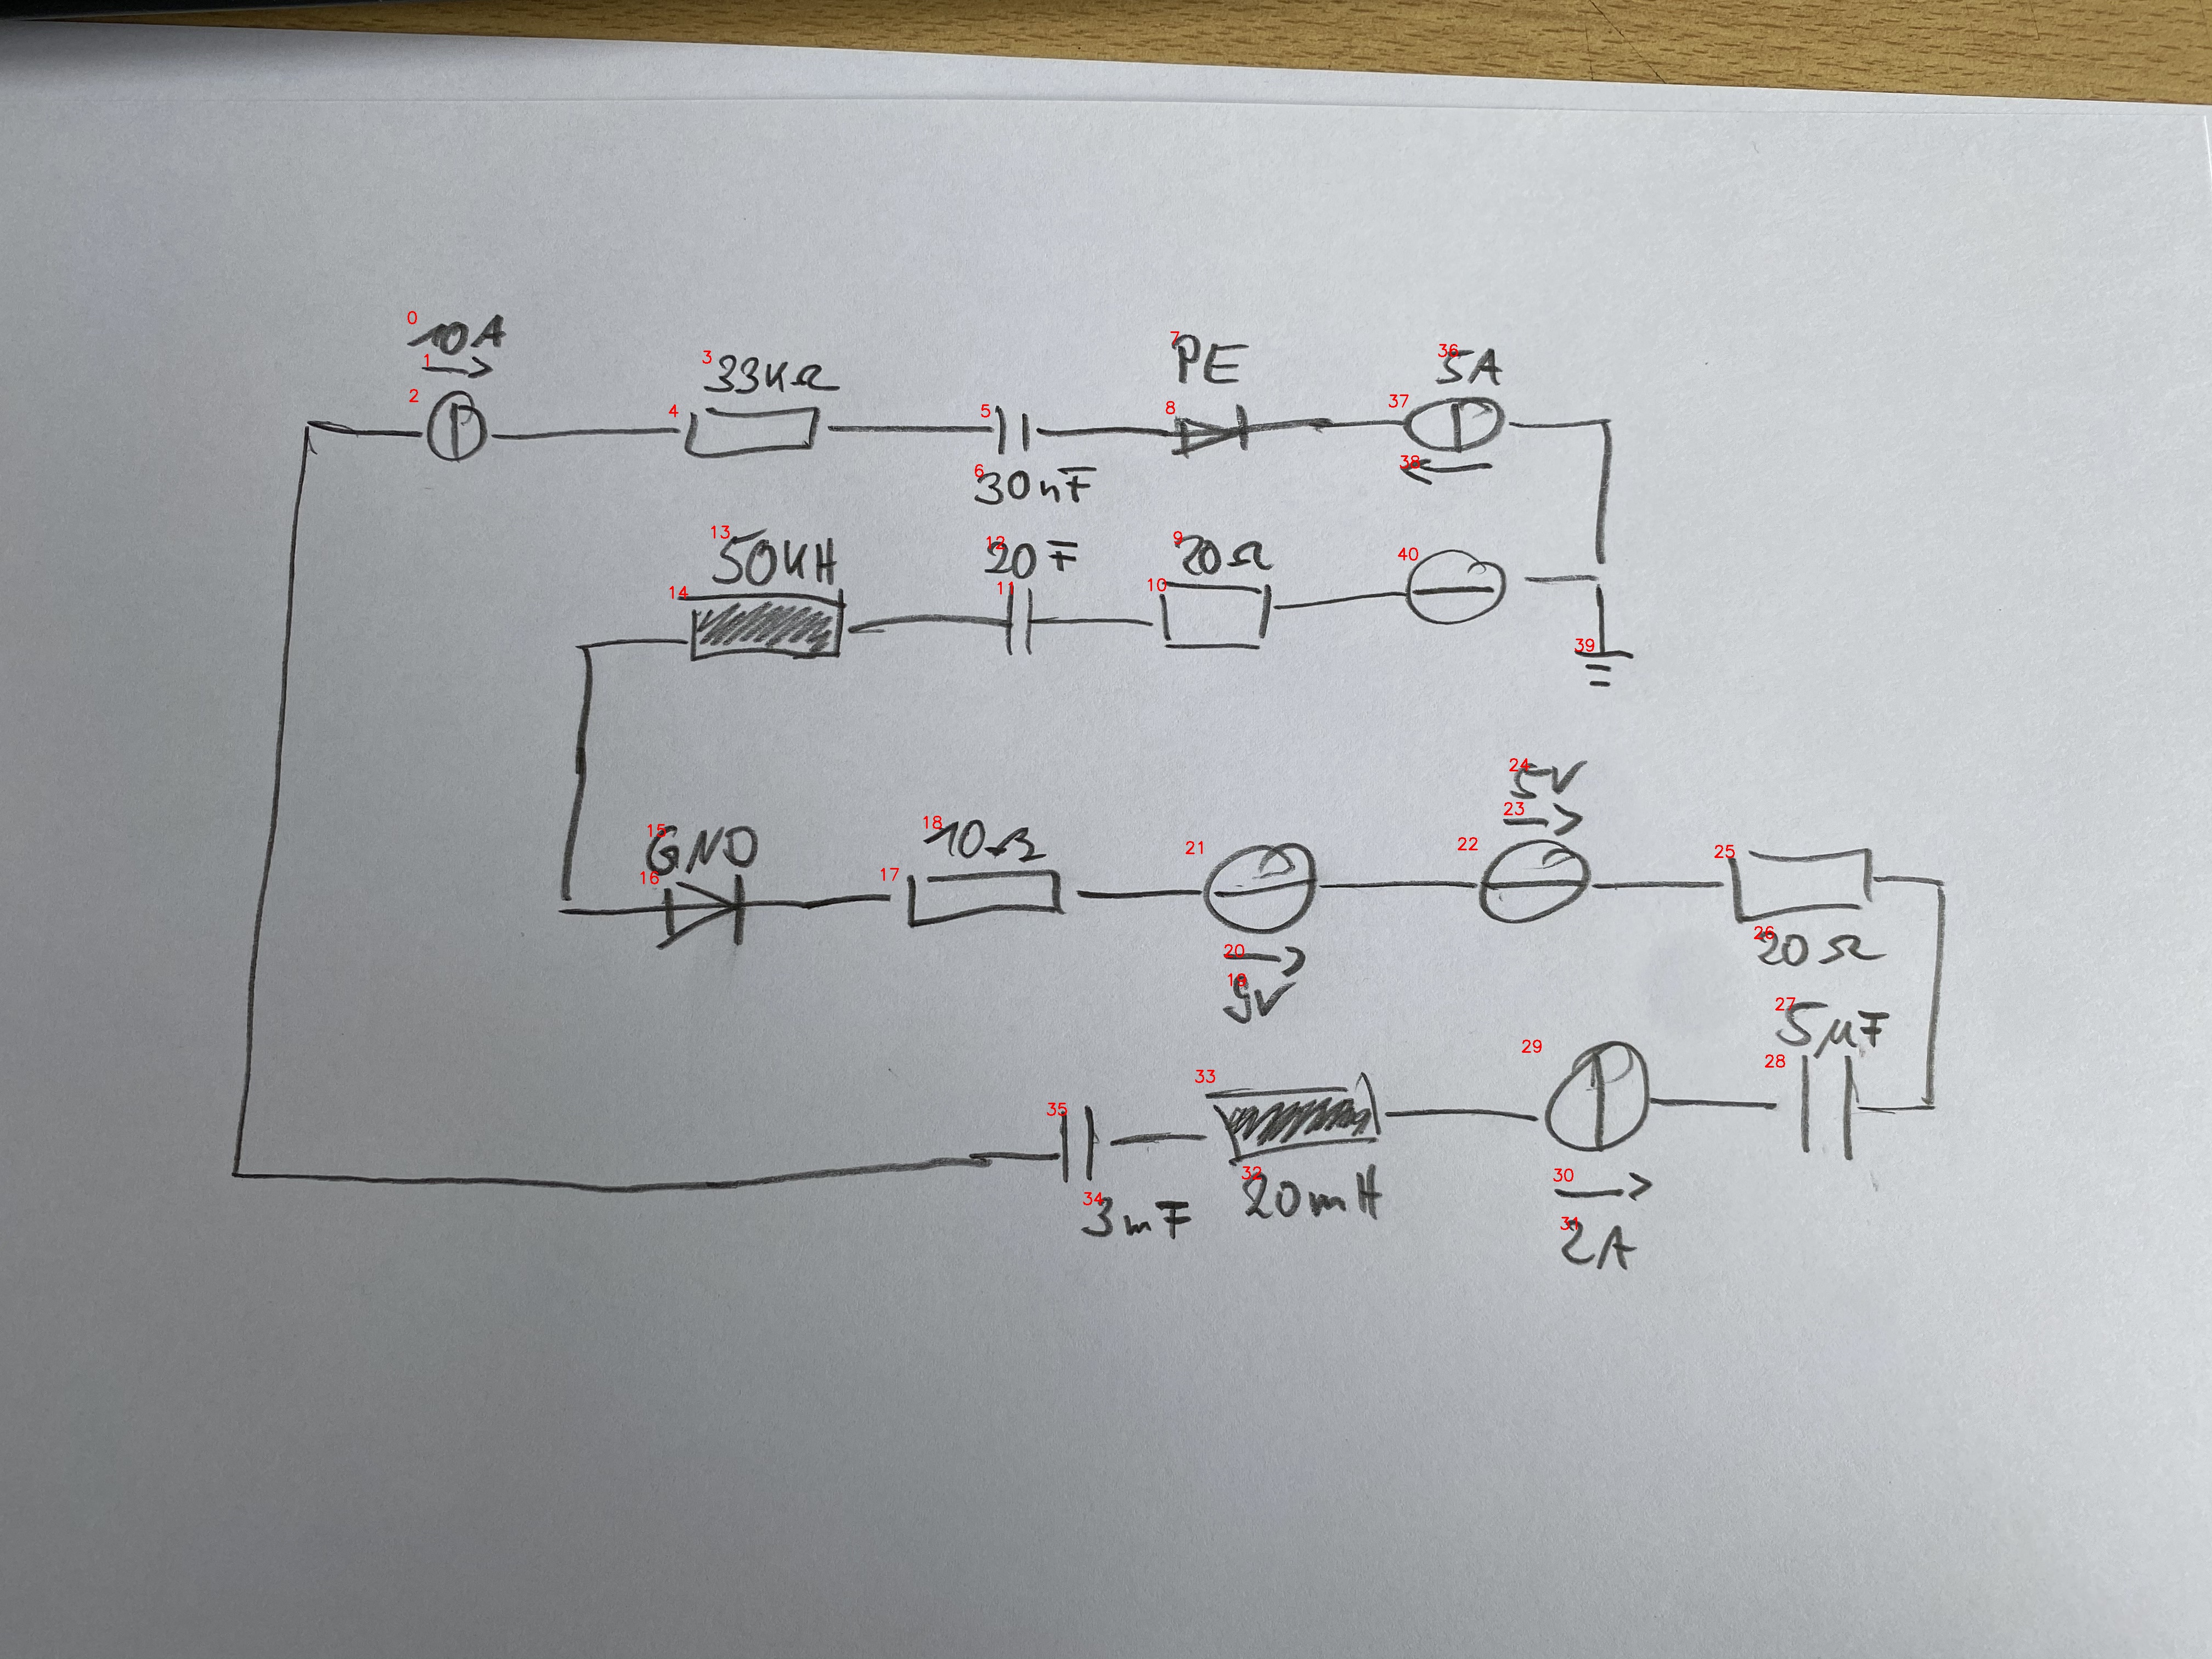 0
10A
1
2
3
33kΩ
4
5
6
30nF
7
PE
8
36
5A
37
38
13
50kH
14
12
20F
11
9
20Ω
10
40
39
15
GND
16
18
10Ω
17
21
20
19
9V
24
5V
23
22
25
26
20Ω
27
5µF
28
29
30
31
2A
33
32
20mH
35
34
3mF